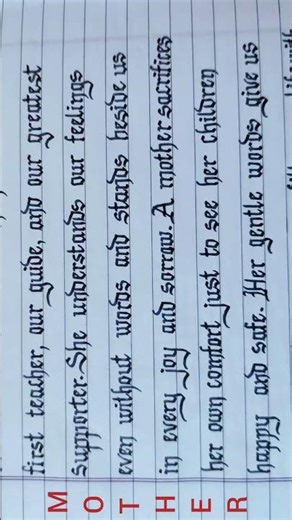 first teacher, our guide, and our greatest
M supporter. She understands our feelings
O even without words and stands beside us
T in every joy and sorrow. A mother sacrifices
H her own comfort just to see her children
E happy and safe. Her gentle words give us
R